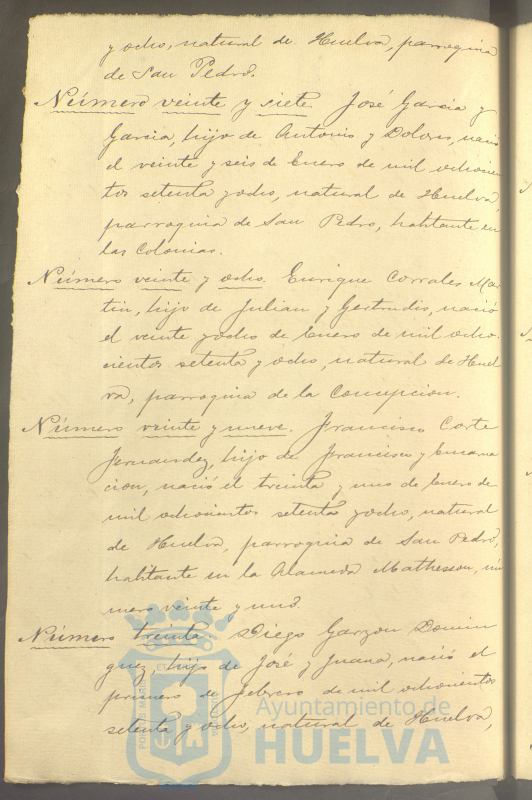 y ocho, natural de Huelva, parroquia
de San Pedro.
Número veinte y siete José Garcia y
Garcia, hijo de Antonio y Dolores, nació
el veinte y seis de Enero de mil ochocien
tos setenta y ocho, natural de Huelva,
parroquia de San Pedro, habitante en
las Colonias.
Número veinte y ocho. Enrique Corrales Mar
tin, hijo de Julian y Gertrudis, nació
el veinte y ocho de Enero de mil ocho-
cientos setenta y ocho, natural de Huel
va, parroquia de la Concepcion.
Número veinte y nueve. Francisco Corte
Fernandez, hijo de Francisco y Encarna
cion, nació el treinta y uno de Enero de
mil ochocientos setenta y ocho, natural
de Huelva, parroquia de San Pedro,
habitante en la Alameda Mathesson, nú
mero veinte y uno.
Número treinta Diego Garzon Domin
guez, hijo de José y Juana, nació el
primero de Febrero de mil ochocientos
setenta y ocho, natural de Huelva,
Ayuntamiento de
HUELVA